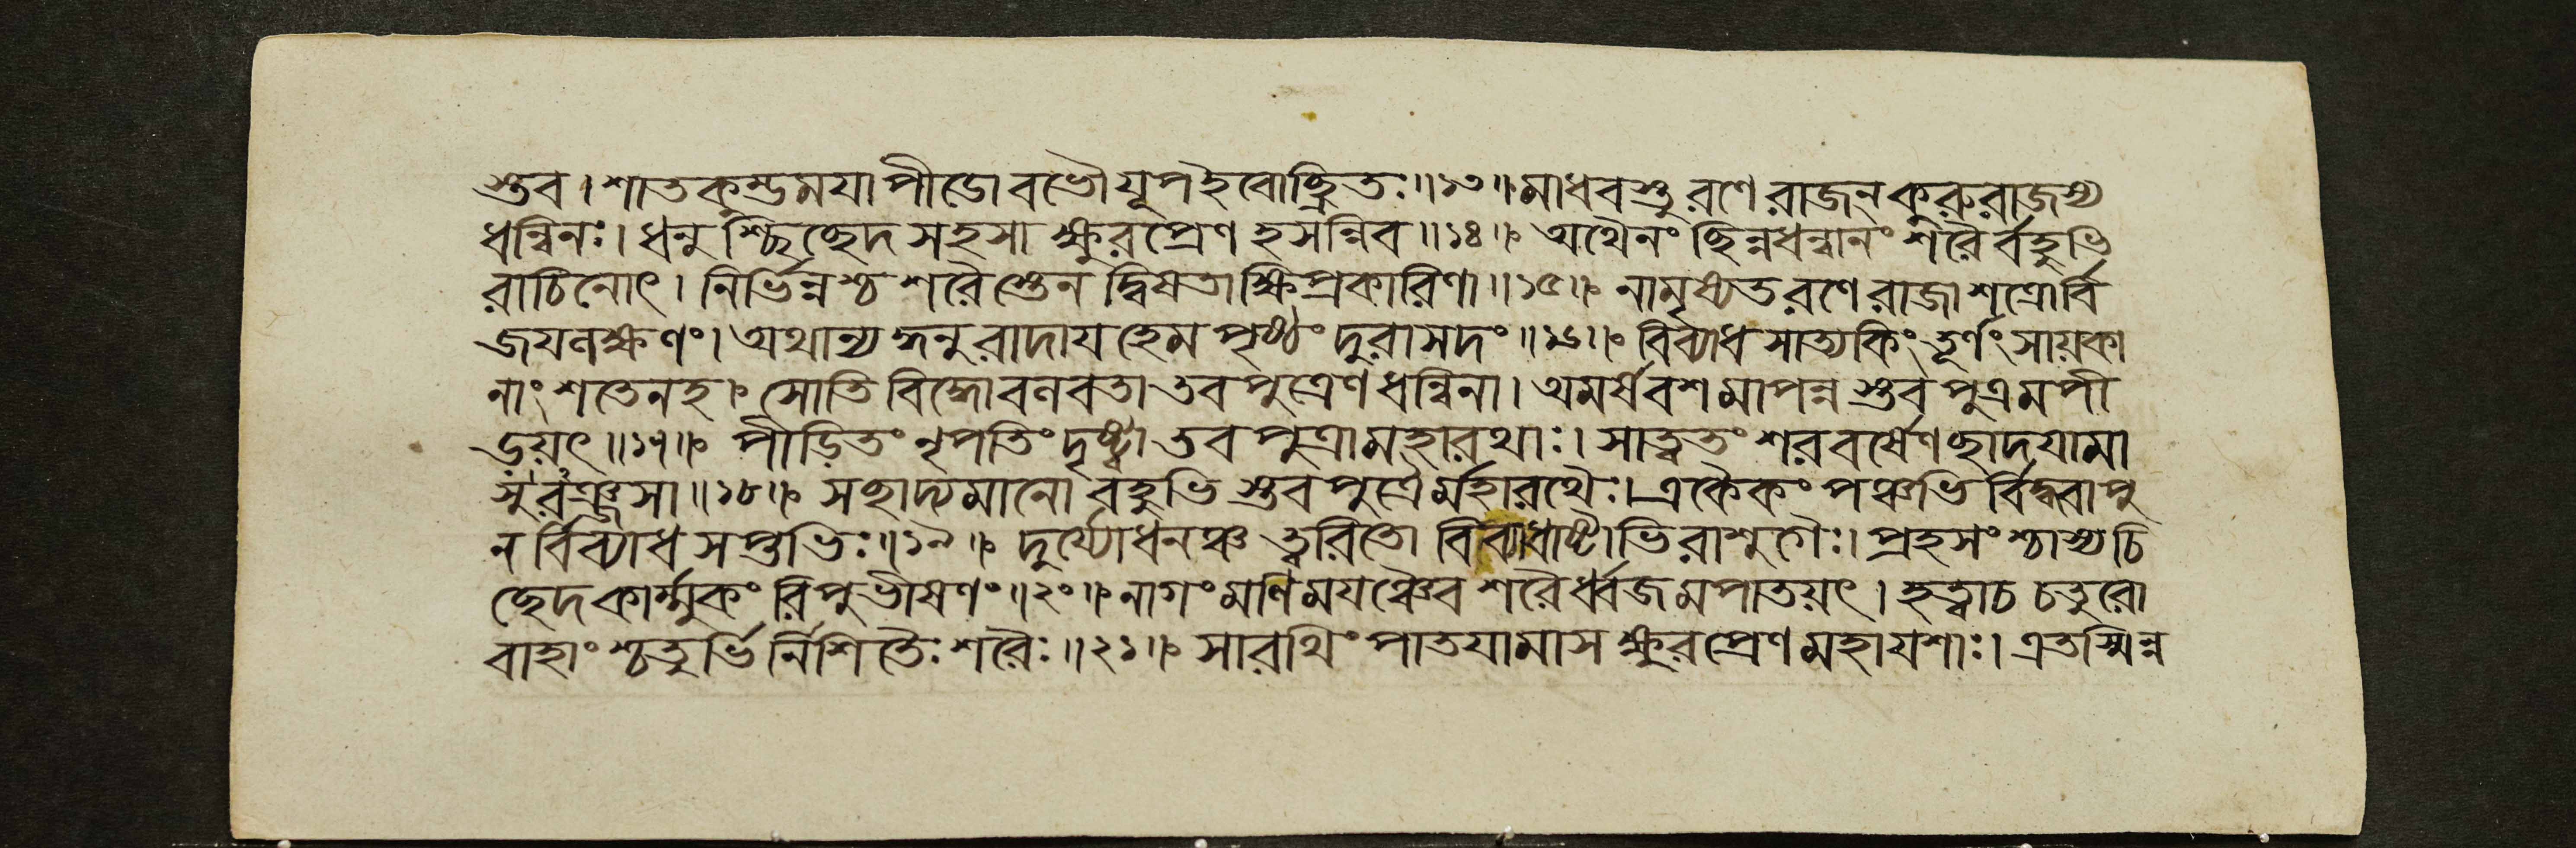 স্তব। শাতকুম্ভময়াপীডো বভৌ যূপ ইবোচ্ছ্রিতঃ॥ ১৩॥ মাধবস্তু রণে রাজন্ কুরুরাজস্য
ধন্বিনঃ। ধনুশ্চিচ্ছেদ সহসা ক্ষুরপ্রেণ হসন্নিব॥ ১৪॥ অথৈনং ছিন্নধন্বানং শরৈর্বহুভি
রাচিনোৎ। নির্ভিন্নশ্চ শরৈস্তেন দ্বিষতা ক্ষিপ্রকারিণা॥ ১৫॥ নামৃষ্যত রণে রাজা শত্রোর্বি
জয়লক্ষণং। অথান্যদ্ধনুরাদায় হেমপৃষ্ঠং দুরাসদং॥ ১৬॥ বিব্যাধ সাত্যকিং তূর্ণং সায়কা
নাং শতেন হ॥ সোতিবিদ্ধো বলবতা তব পুত্রেণ ধন্বিনা। অমর্ষবশমাপন্নস্তব পুত্রমপী
ড়য়ৎ॥ ১৭॥ পীড়িতং নৃপতিং দৃষ্ট্বা তব পুত্রা মহারথাঃ। সাত্বতং শরবর্ষেণ ছাদয়ামা
সুরঞ্জসা॥ ১৮॥ সছাদ্যমানো বহুভিস্তব পুত্রৈর্মহারথৈঃ। একৈকং পঞ্চভির্বিদ্ধবা পু
নর্বিব্যাধ সপ্তভিঃ॥ ১৯॥ দুর্য্যোধনঞ্চ ত্বরিতো বিব্যাধাষ্টাভিরাশুগৈঃ। প্রহসংশ্চাস্য চি
চ্ছেদ কার্ম্মুকং রিপুভীষণং॥ ২০॥ নাগং মণিময়ঞ্চৈব শরৈর্ধ্বজমপাতয়ৎ। হত্বা চ চতুরো
বাহাংশ্চতুর্ভির্নিশিতৈঃ শরৈঃ॥ ২১॥ সারথিং পাতয়ামাস ক্ষুরপ্রেণ মহাযশাঃ। এতস্মিন্ন